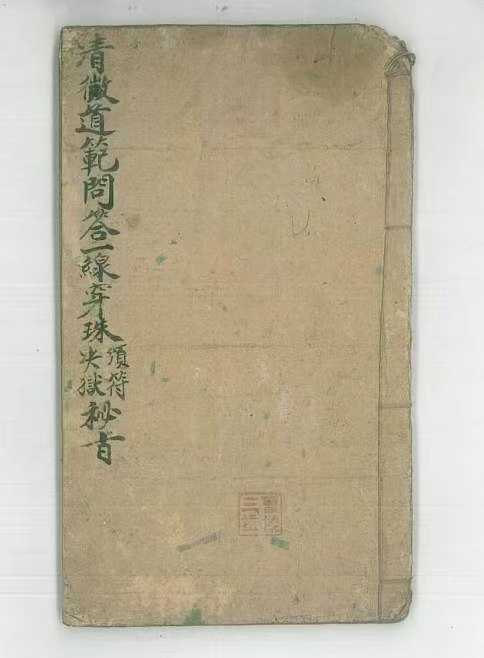 清微道範問答一線穿珠
符
獄
秘旨